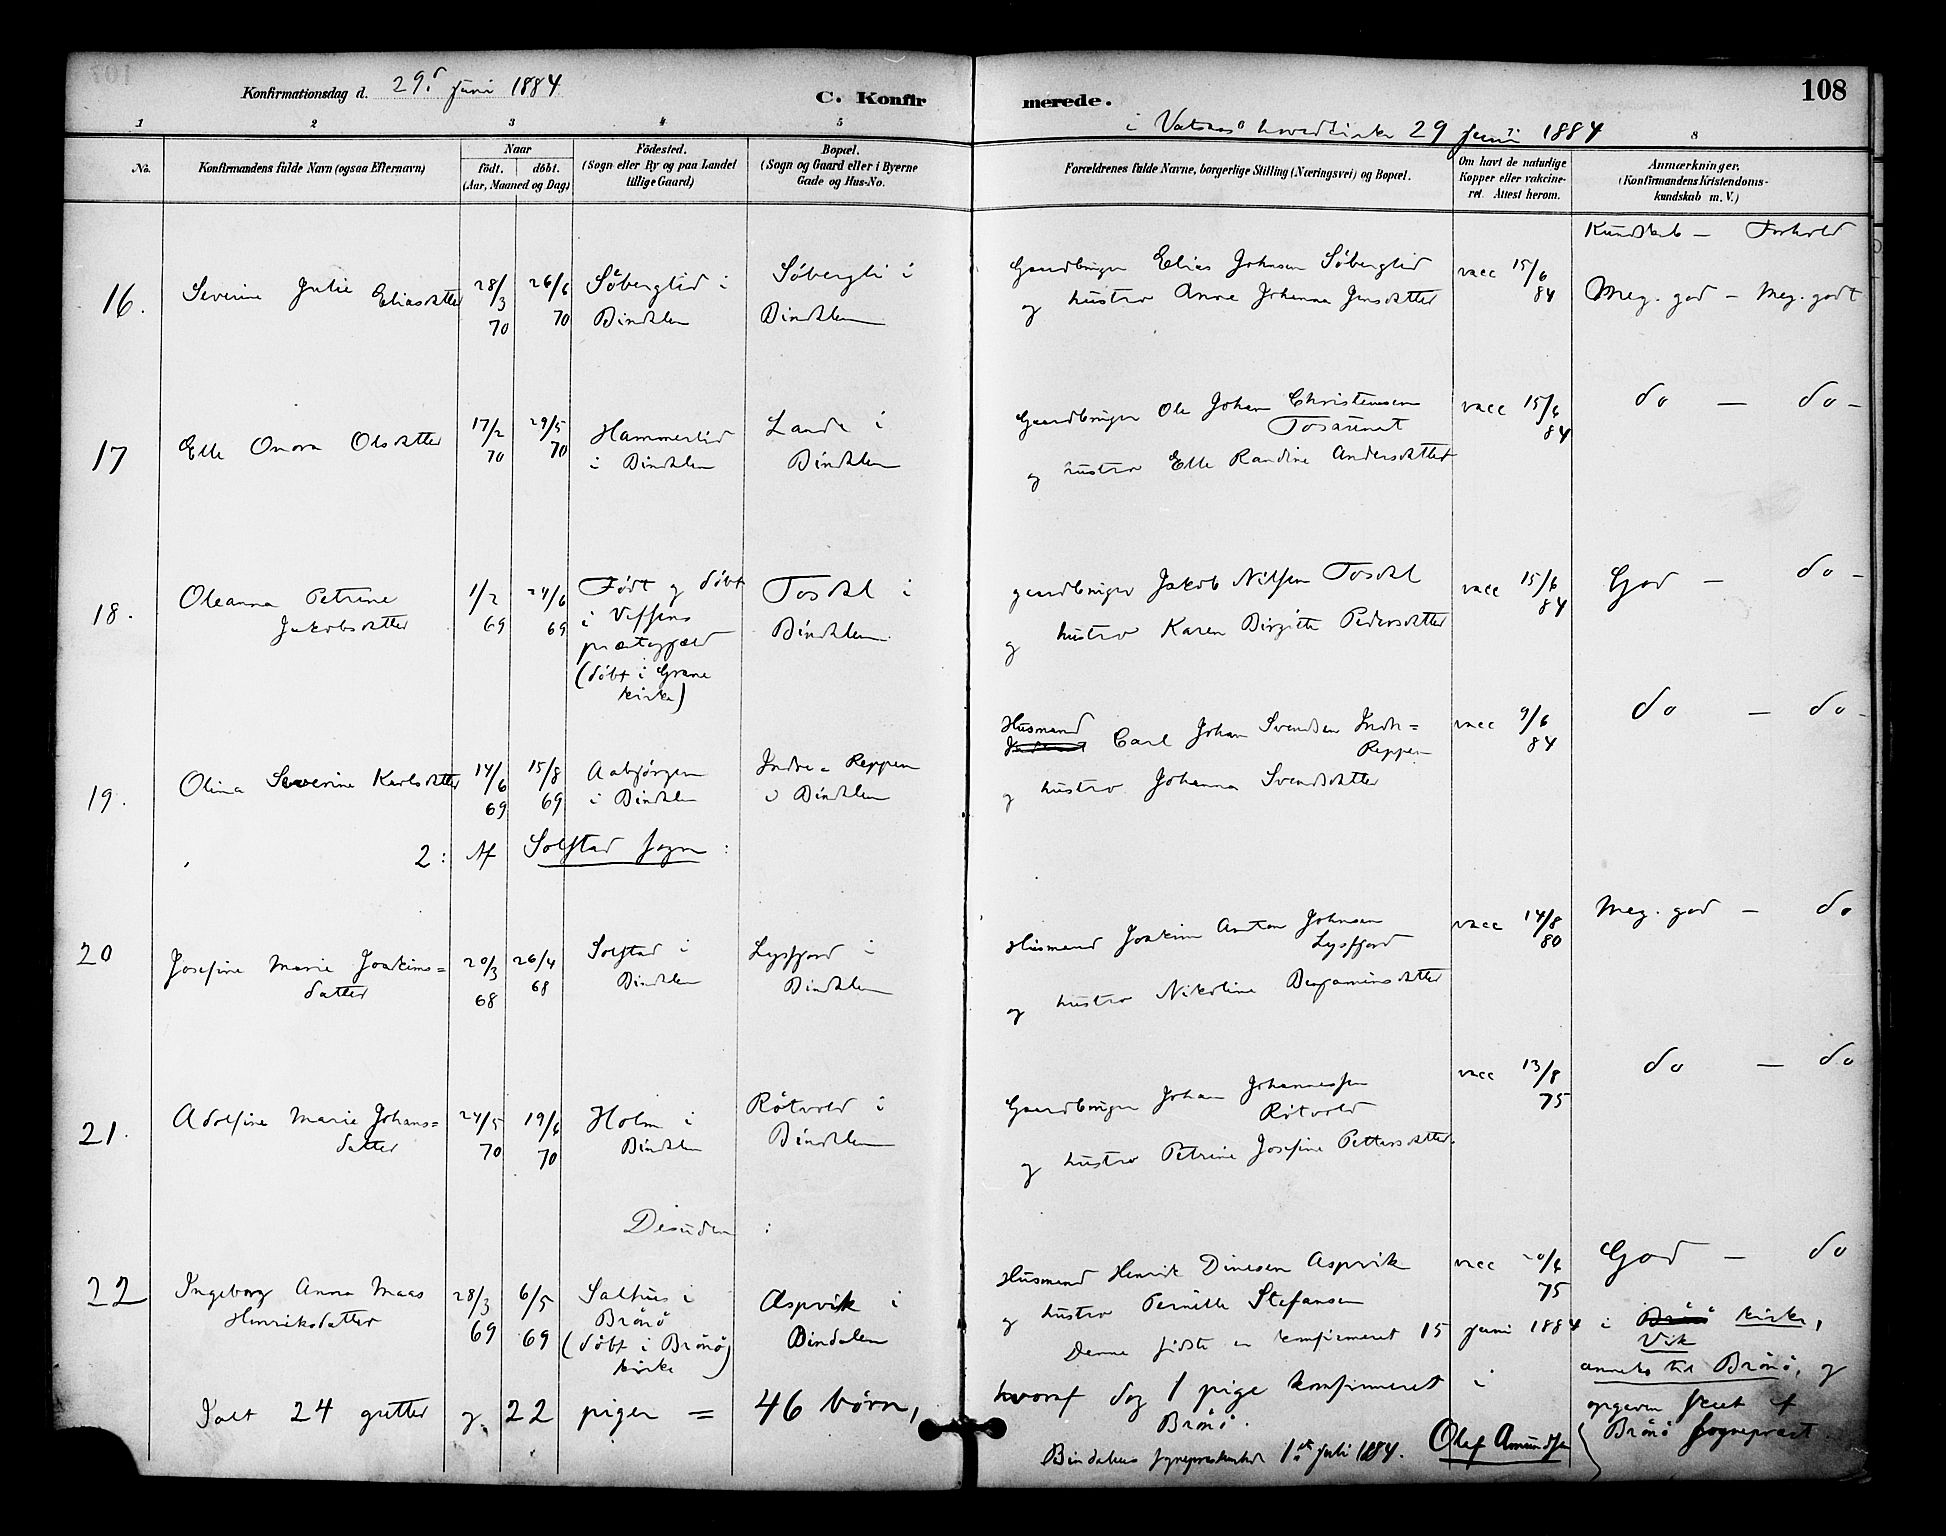 Konfirmationsdag d. 29. juni 1884
C. Konfirmerede.
108
i Vatsaas hovedkirke 29 juni 1884
1 2 3 4 5 8
No.
Konfirmandens fulde Navn (ogsaa Efternavn)
Naar
födt. döbt.
(Aar, Maaned og Dag)
Födested.
(Sogn eller By og paa Landet
tillige Gaard)
Bopæl.
(Sogn og Gaard eller i Byerne
Gade og Hus-No.
Forældrenes fulde Navne, borgerlige Stilling (Næringsvei) og Bopæl.
Om havt de naturlige
Kopper eller vakcine-
ret. Attest herom.
Anmærkninger.
(Konfirmandens Kristendoms-
kundskab m. V.)
Kundskab – Forhold
16. Severine Julie Eliasdatter
28/3 70
26/6 70
Söberglid i
Bindalen
Söbergli i
Bindalen
Gaardbruger Elias Johnsen Söberglid
og hustro Anne Johanna Jensdatter
vacc 15/6 84
Meg. god – Meg. godt
17 Elle Onora Olsdatter
17/2 70
29/5 70
Hammerlid
i Bindalen
Lande i
Bindalen
Gaardbruger Ole Johan Christensen
Tosaunet
og hustro Elle Randine Andersdatter
vacc 15/6 84
do – do –
18. Oleanna Petrine
Jakobsdatter
1/2 69
24/6 69
Födt og döbt
i Vefsens
præstegjæld
(döbt i Grane
kirke)
Tosdal i
Bindalen
gaardbruger Jakob Nilsen Tosdal
og hustro Karen Birgitte Pedersdatter
vacc 15/6 84
God – do –
19. Olina Severine Karlsdatter
14/6 69
15/8 69
Aabjörgen
i Bindalen
Indre = Reppen
i Bindalen
Husmand
Carl Johan Svendsen Indr=
Reppen
og hustro Johanna Svendsdatter
vacc 9/6 84
do – do –
2: Af Solstad sogn:
20 Josefine Marie Joakims=
datter
20/3 68
26/4 68
Solstad i
Bindalen
Lysfjord i
Bindalen
Husmand Joakim Anton Johnsen
Lysfjord
og hustro Nikoline Benjaminsdatter
vacc 14/8 80
Meg. god – do
21. Adolfine Marie Johans=
datter
24/5 70
19/6 70
Holm i
Bindalen
Rötvold i
Bindalen
Gaardbruger Johan Johannessen
Rötvold
og hustro Petrine Josefine Pettersdatter.
vacc 13/8 75
do – do
Desuden :
22 Ingeborg Anna Maas
Henriksdatter
28/3 69
6/5 69
Salhus i
Brönö
(döbt i Brönö
kirke
Aspvik i
Bindalen
Husmand Henrik Dinesen Aspvik
og hustro Pernille Stefansen
vacc 75
God – do
Denne sidste er konfirmeret 15 juni 1884 i Brönö kirke,
Vik
anneks til Brönö, og
opgaven sket af
Brönö sognepræst.
Ialt 24 gutter og 22 piger = 46 börn,
hvoraf dog 1 pige konfirmeret i
Brönö.
Bindalens sognepræstembede 1. juli 1884. Olaf Amundsen